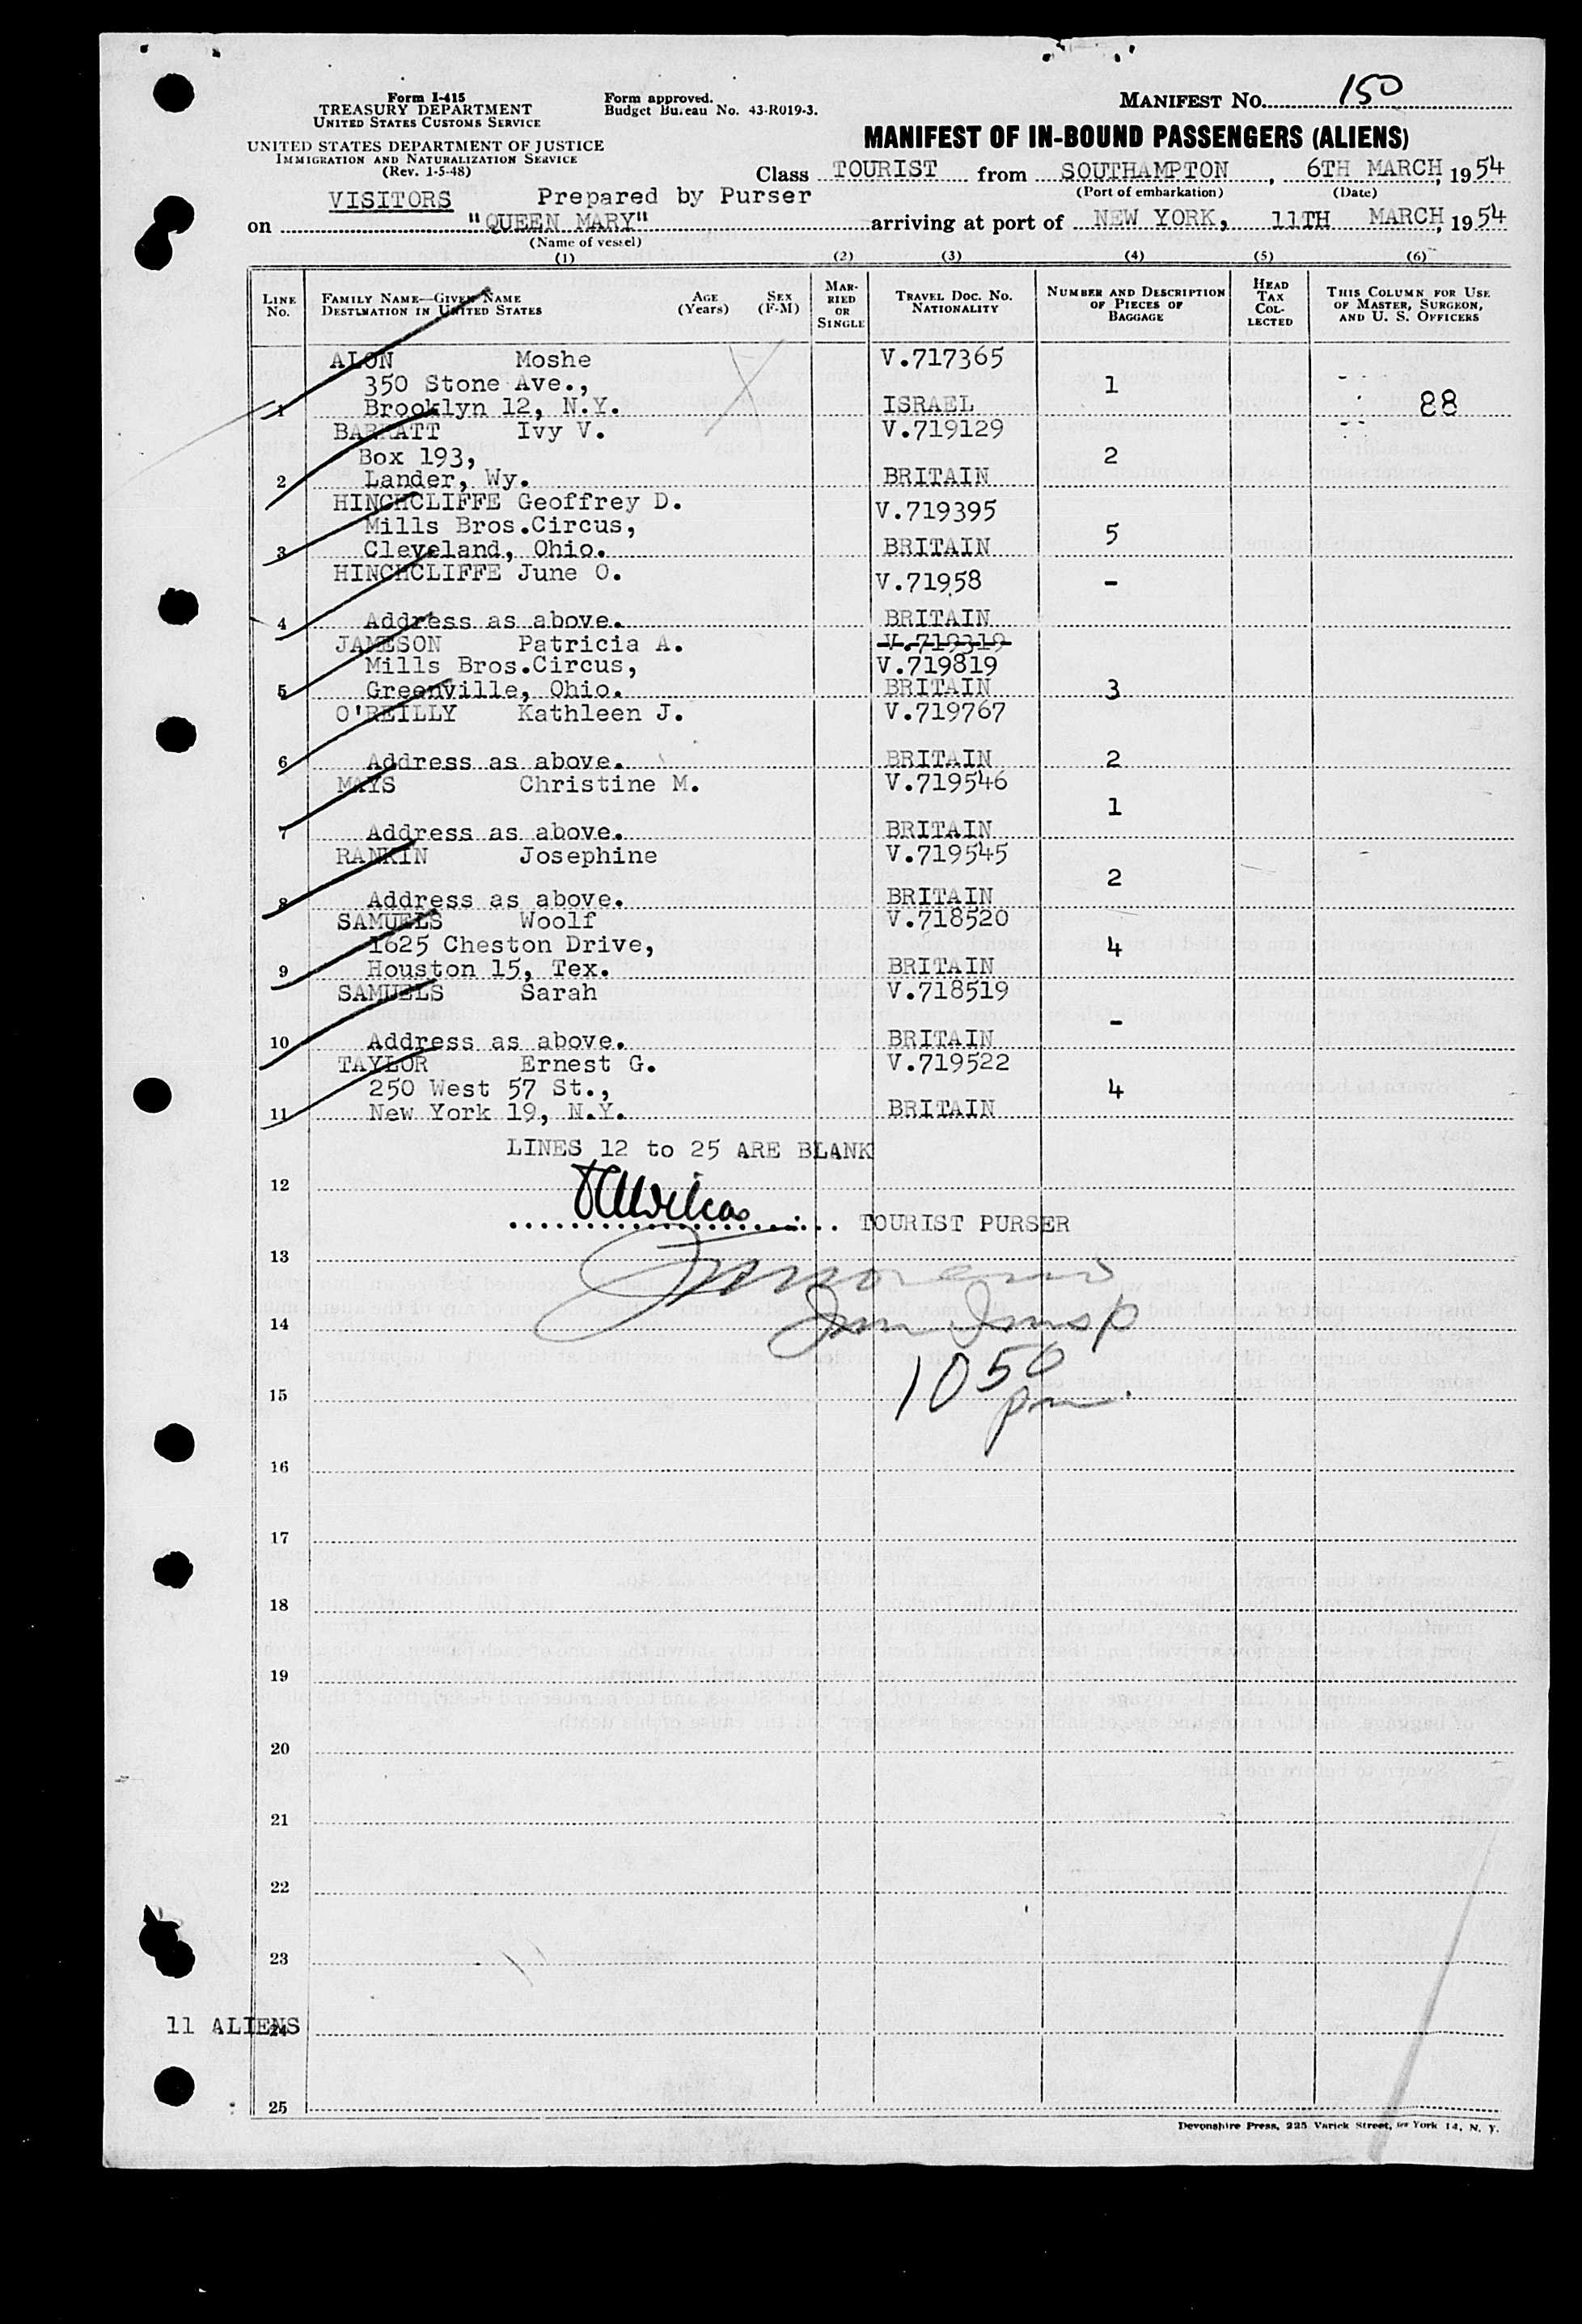 Form I-415
TREASURY DEPARTMENT
UNITED STATES CUSTOMS SERVICE
UNITED STATES DEPARTMENT OF JUSTICE
IMMIGRATION AND NATURALIZATION SERVICE
(Rev. 1-5-48)
Form approved.
Budget Bureau No. 43-R019-3.
MANIFEST NO. 150
MANIFEST OF IN-BOUND PASSENGERS (ALIENS)
Class TOURIST from SOUTHAMPTON, 6TH MARCH, 1954
(Port of embarkation) (Date)
VISITORS Prepared by Purser
on "QUEEN MARY" arriving at port of NEW YORK, 11TH MARCH, 1954
(Name of vessel)
(1) (2) (3) (4) (5) (6)
LINE NO. FAMILY NAME—GIVEN NAME DESTINATION IN UNITED STATES AGE (Years) SEX (F-M) MARRIED OR SINGLE TRAVEL DOC. NO. NATIONALITY NUMBER AND DESCRIPTION OF PIECES OF BAGGAGE HEAD TAX COLLECTED THIS COLUMN FOR USE OF MASTER, SURGEON, AND U. S. OFFICERS
ALON Moshe V.717365
350 Stone Ave., 1
1 Brooklyn 12, N.Y. ISRAEL 88
BARRATT Ivy V. V.719129
Box 193, 2
2 Lander, Wy. BRITAIN
HINCHCLIFFE Geoffrey D. V.719395
Mills Bros.Circus, 5
3 Cleveland, Ohio. BRITAIN
HINCHCLIFFE June O. V.71958 -
4 Address as above. BRITAIN
JAMESON Patricia A. V.719319
Mills Bros.Circus, V.719819
5 Greenville, Ohio. BRITAIN 3
O'REILLY Kathleen J. V.719767
6 Address as above. BRITAIN 2
MAYS Christine M. V.719546
1
7 Address as above. BRITAIN
RANKIN Josephine V.719545
2
8 Address as above. BRITAIN
SAMUELS Woolf V.718520
1625 Cheston Drive, 4
9 Houston 15, Tex. BRITAIN
SAMUELS Sarah V.718519
-
10 Address as above. BRITAIN
TAYLOR Ernest G. V.719522
250 West 57 St., 4
11 New York 19, N.Y. BRITAIN
LINES 12 to 25 ARE BLANK
12
TOURIST PURSER
13
14
Imm Insp
10 50
15
pm
16
17
18
19
20
21
22
23
11 ALIENS
24
25
Devonshire Press, 225 Varick Street, New York 14, N. Y.